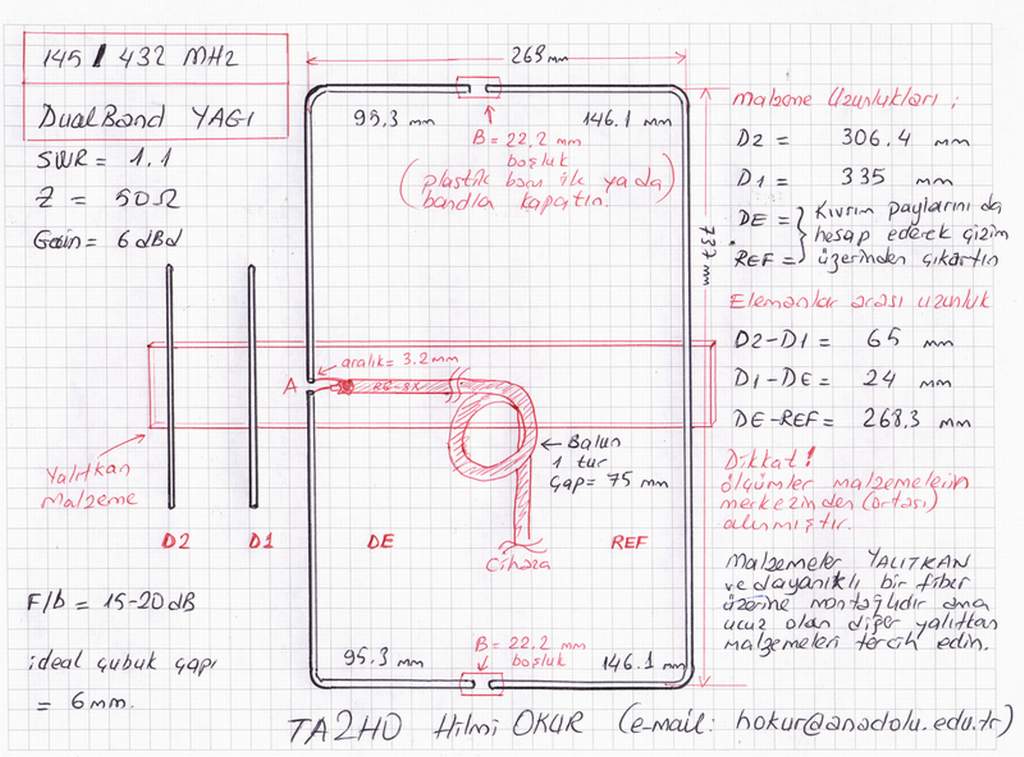 145 / 432 MHz
DualBand YAGI
SWR = 1,1
Z = 50Ω
Gain = 6 dBd
268 mm
95,3 mm
146.1 mm
B = 22,2 mm
boşluk
(plastik boru ile ya da
bandla kapatın.)
737 mm
Malzeme Uzunlukları ;
D2 = 306,4 mm
D1 = 335 mm
DE =
REF =
Kıvrım paylarını da
hesap ederek çizim
üzerinden çıkartın
Elemanlar arası uzunluk
D2-D1 = 65 mm
D1-DE = 24 mm
DE-REF = 268,3 mm
Dikkat!
ölçümler malzemelerin
merkezinden (ortası)
alınmıştır.
Malzemeler YALITKAN
ve dayanıklı bir fiber
üzerine montajlıdır ama
ucuz olan diğer yalıtkan
malzemeleri tercih edin.
aralık = 3.2mm
A
RG-8X
← Balun
1 tur
Çap = 75 mm
Yalıtkan
Malzeme
D2
D1
DE
REF
Cihaza
F/b = 15-20dB
ideal çubuk çapı
= 6mm.
95.3 mm
B = 22,2 mm
boşluk
146.1 mm
TA2HO Hilmi OKUR (e-mail: hokur@anadolu.edu.tr)